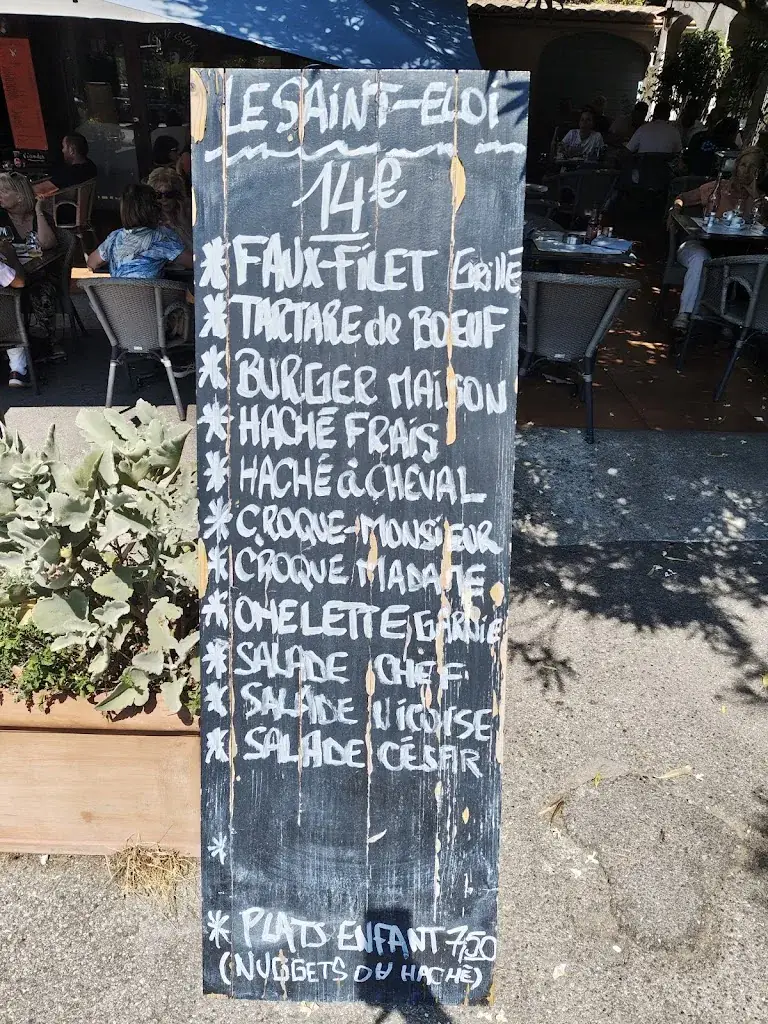 LE SAINT-ELOI
14€
* FAUX-FILET GRILLÉ
* TARTARE de BOEUF
* BURGER MAISON
* HACHÉ FRAIS
* HACHÉ à CHEVAL
* CROQUE-MONSIEUR
* CROQUE MADAME
* OMELETTE GARNIE
* SALADE CHEF
* SALADE NIÇOISE
* SALADE CÉSAR
*
* PLATS ENFANT 7,50
(NUGGETS OU HACHÉ)